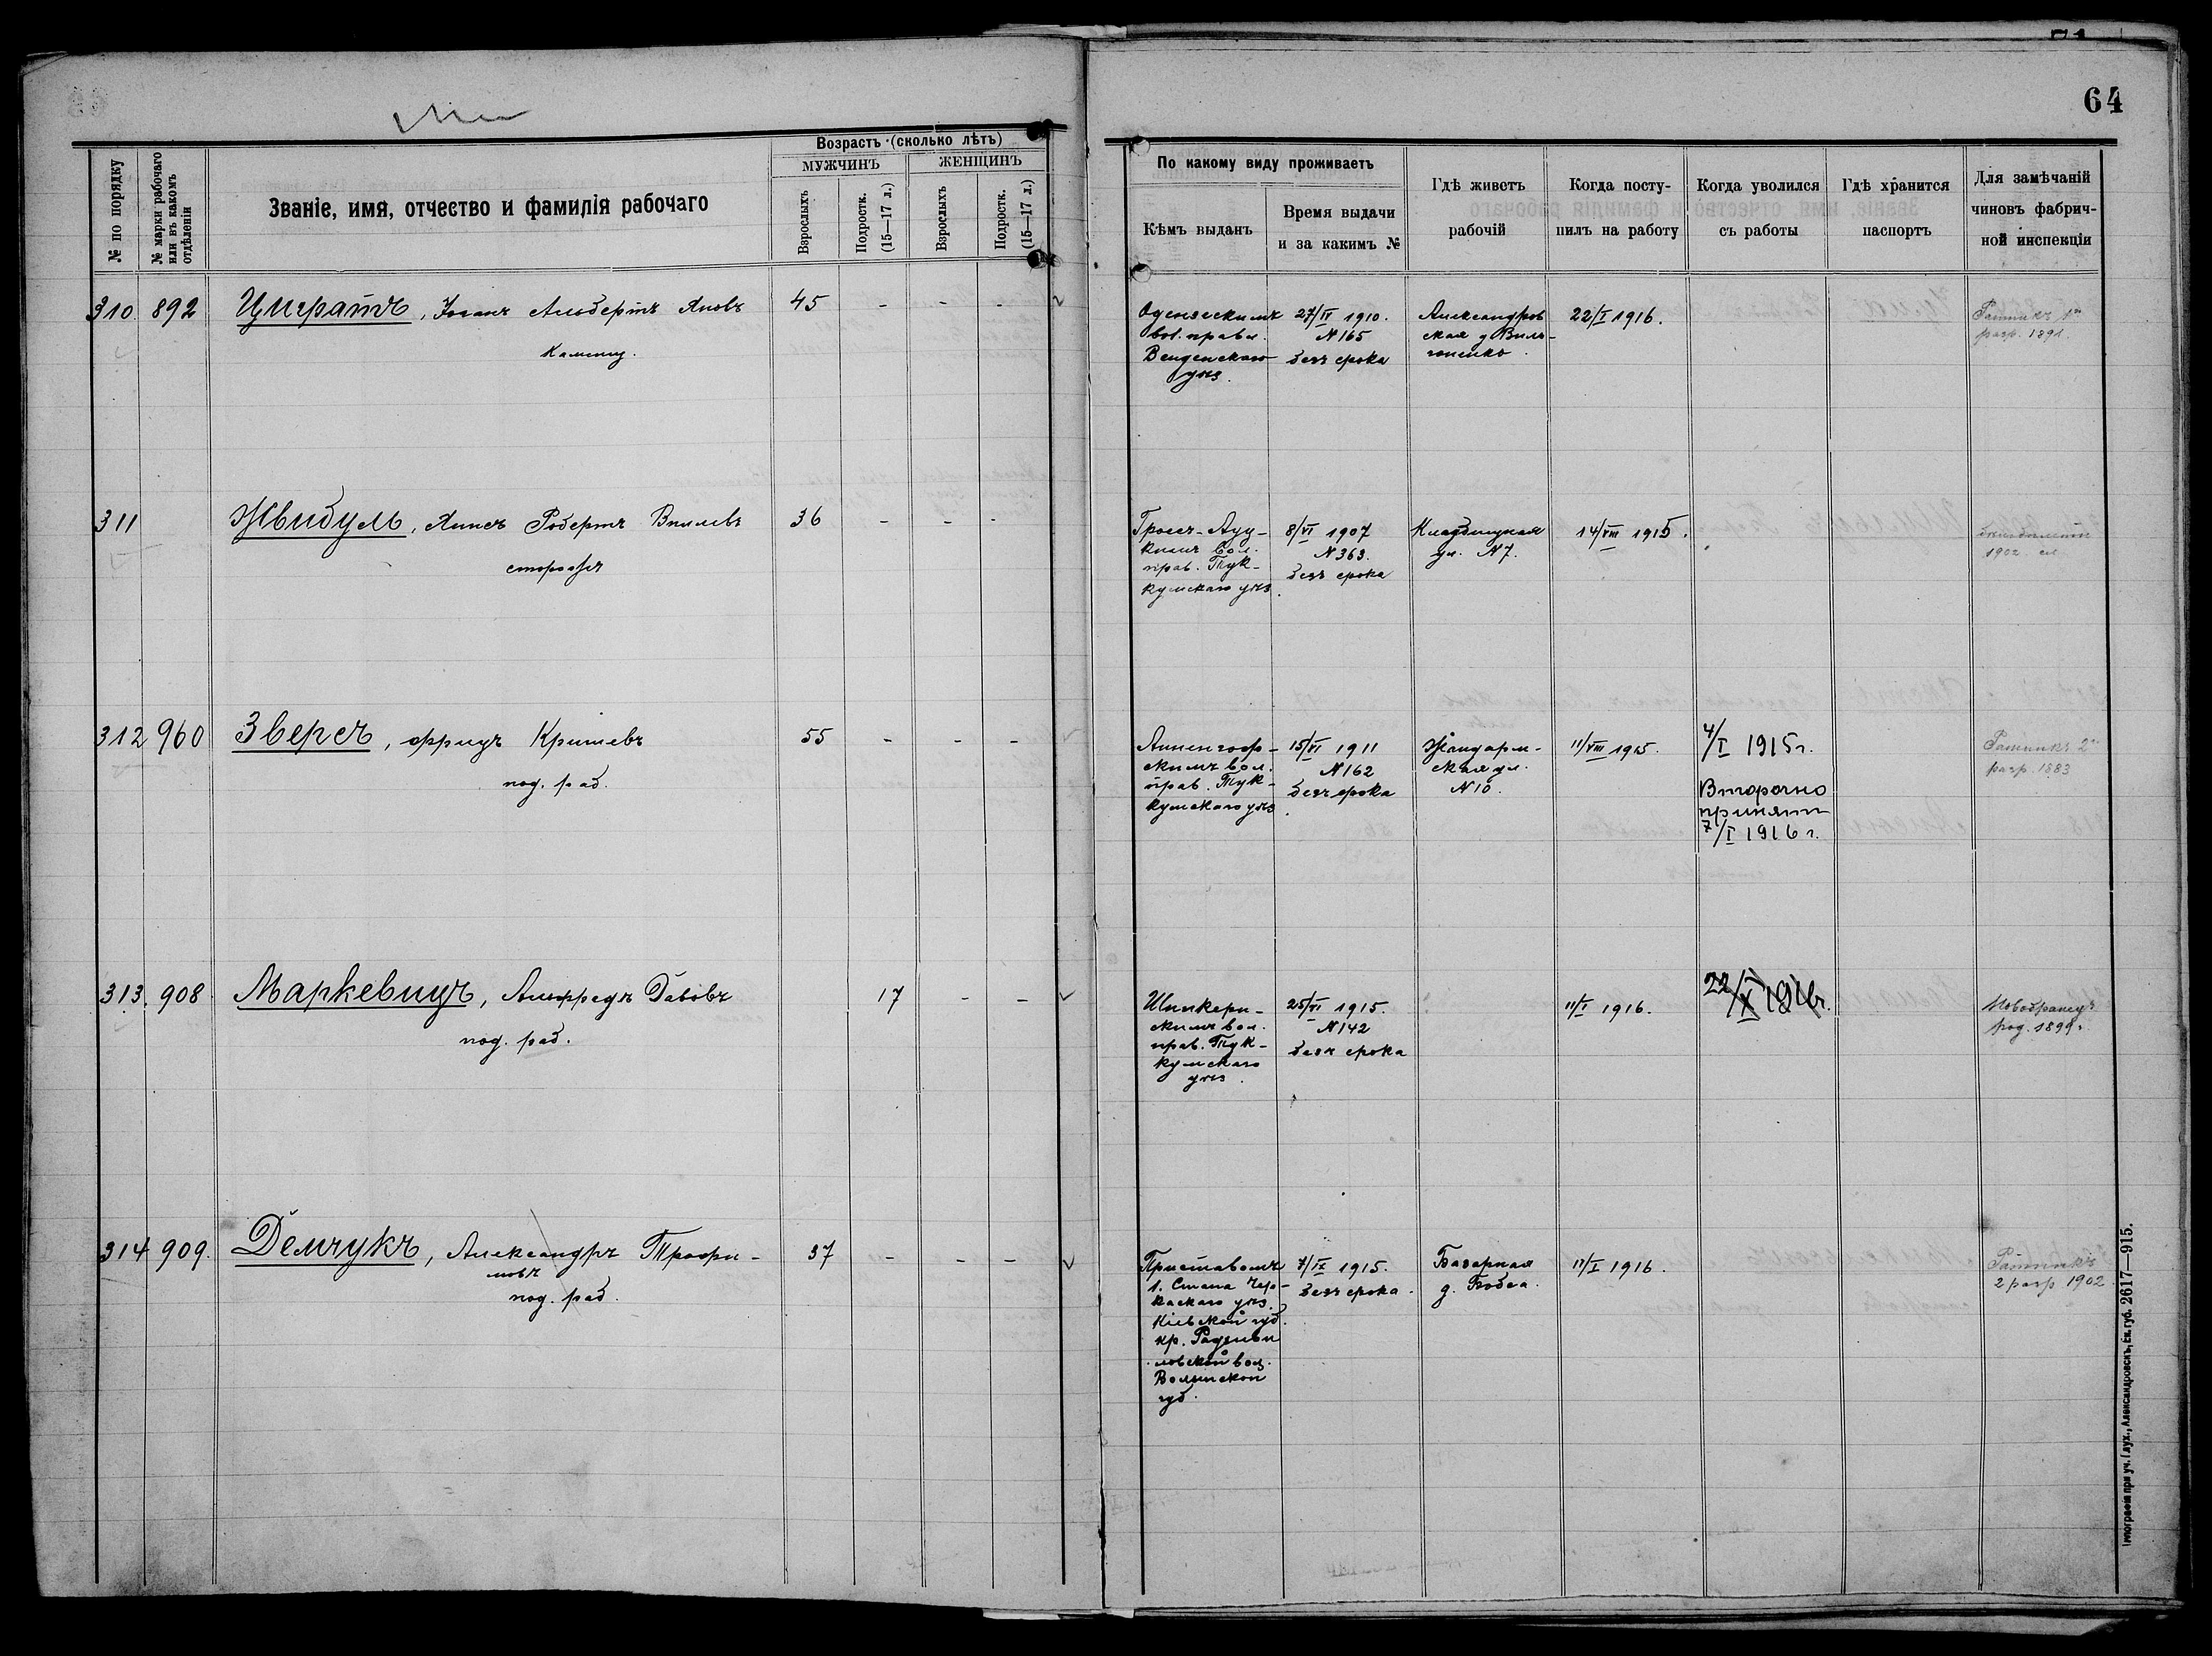 64
№ по порядку
№ марки рабочаго или въ какомъ отдѣленіи
Званіе, имя, отчество и фамилія рабочаго
Возрастъ (сколько лѣтъ)
МУЖЧИНЪ
ЖЕНЩИНЪ
Взрослыхъ
Подростк. (15—17 л.)
Взрослыхъ
Подростк. (15—17 л.)
По какому виду проживаетъ
Кѣмъ выданъ
Время выдачи
и за какимъ №
Гдѣ живетъ
рабочій
Когда посту-
пилъ на работу
Когда уволился
съ работы
Гдѣ хранится
паспортъ
Для замѣчаній
чиновъ фабрич-
ной инспекціи
310 892 Циграть, Іоганъ Альбертъ Яновъ 45 - - -
27/IV 1910.
Александров
22/I 1916.
Ратникъ 1го
вол. правл.
N 165
ская д Виль-
разр. 1891.
Венденскаго
безъ срока
уѣз.
311 Жвибуль, Янисъ Робертъ Вилевъ 36 - - -
сторожъ
Гросъ-Ауц-
8/VI 1907
14/VIII 1915.
кимъ вол.
N 363.
ул. N 7.
1902
прав. Тук-
безъ срока
кумскаго уѣз.
312 960 Зверсъ, Фрицъ Кришевъ 55 - - -
под. раб.
Анненгоф-
15/VI 1911
Жандарм-
11/VIII 1915.
4/I 1915 г.
Ратникъ 2го
скимъ вол.
N 162
ская ул.
разр. 1883
прав. Тук-
безъ срока
N 10.
Вторично
кумскаго уѣз.
принятъ
7/I 1916 г.
313. 908 Маркевицъ, Альфредъ Давовъ 17 - -
под. раб.
25/VI 1915.
11/I 1916.
22/X 1916 г.
Новобранецъ
скимъ вол.
N 142
род. 1899 г.
прав. Тук-
безъ срока
кумскаго
уѣз.
314 909. Демчукъ, Александръ Трофи- 37 - - -
мовъ
под. раб.
Приставомъ
7/IX 1915.
Базарная
11/I 1916.
Ратникъ
1. Стана Чер-
безъ срока.
д. Бобса.
2 разр 1902
каскаго уѣз.
Кіевской губ.
кр. Радзиви
ловской вол.
Волынской
губ.
Типографія при уч. Глух., Александровскъ, Ек. губ. 2617—915.